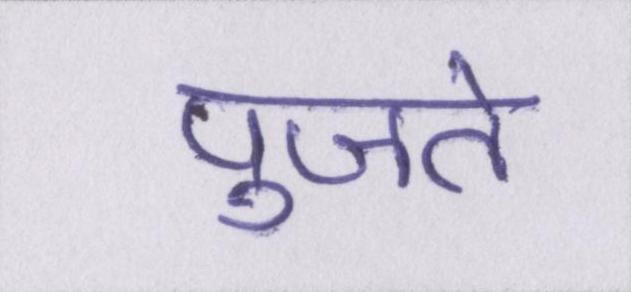 पुजते